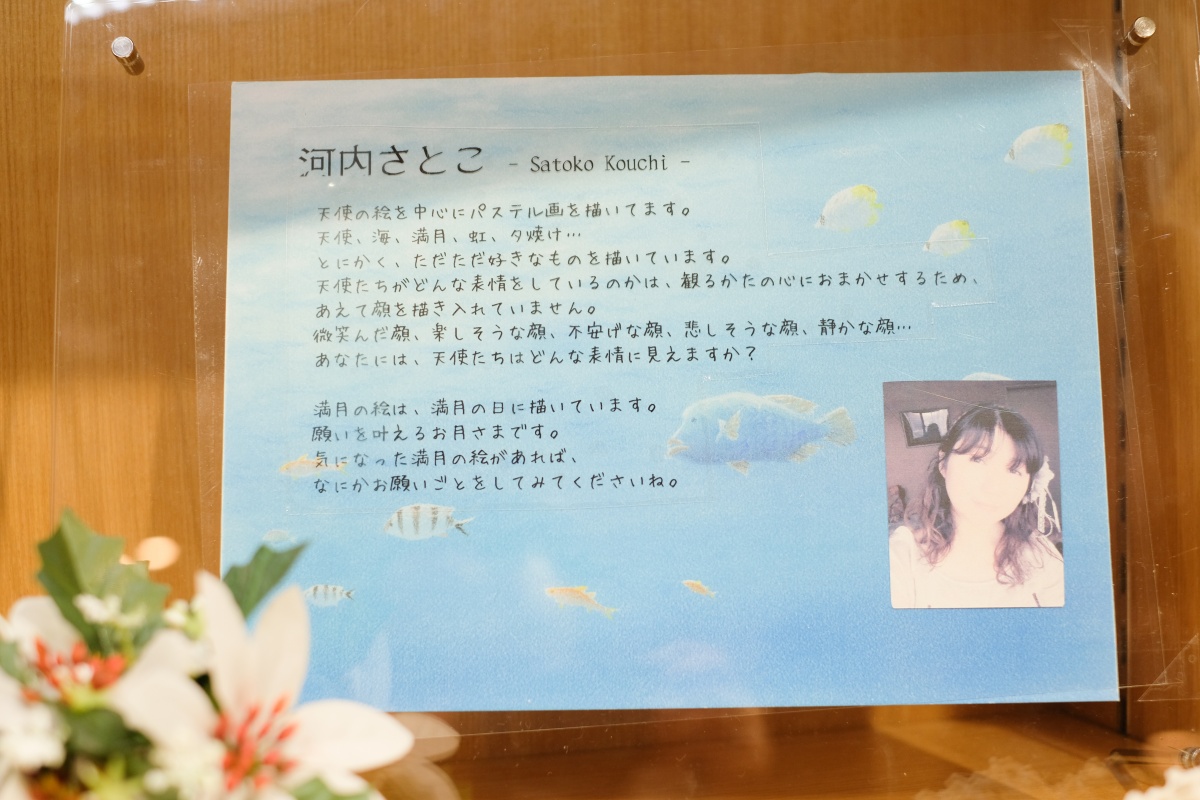 河内さとこ - Satoko Kouchi -
天使の絵を中心にパステル画を描いてます。
天使、海、満月、虹、夕焼け…
とにかく、ただただ好きなものを描いています。
天使たちがどんな表情をしているのかは、観るかたの心におまかせするため、
あえて顔を描き入れていません。
微笑んだ顔、楽しそうな顔、不安げな顔、悲しそうな顔、静かな顔…
あなたには、天使たちはどんな表情に見えますか？
満月の絵は、満月の日に描いています。
願いを叶えるお月さまです。
気になった満月の絵があれば、
なにかお願いごとをしてみてくださいね。